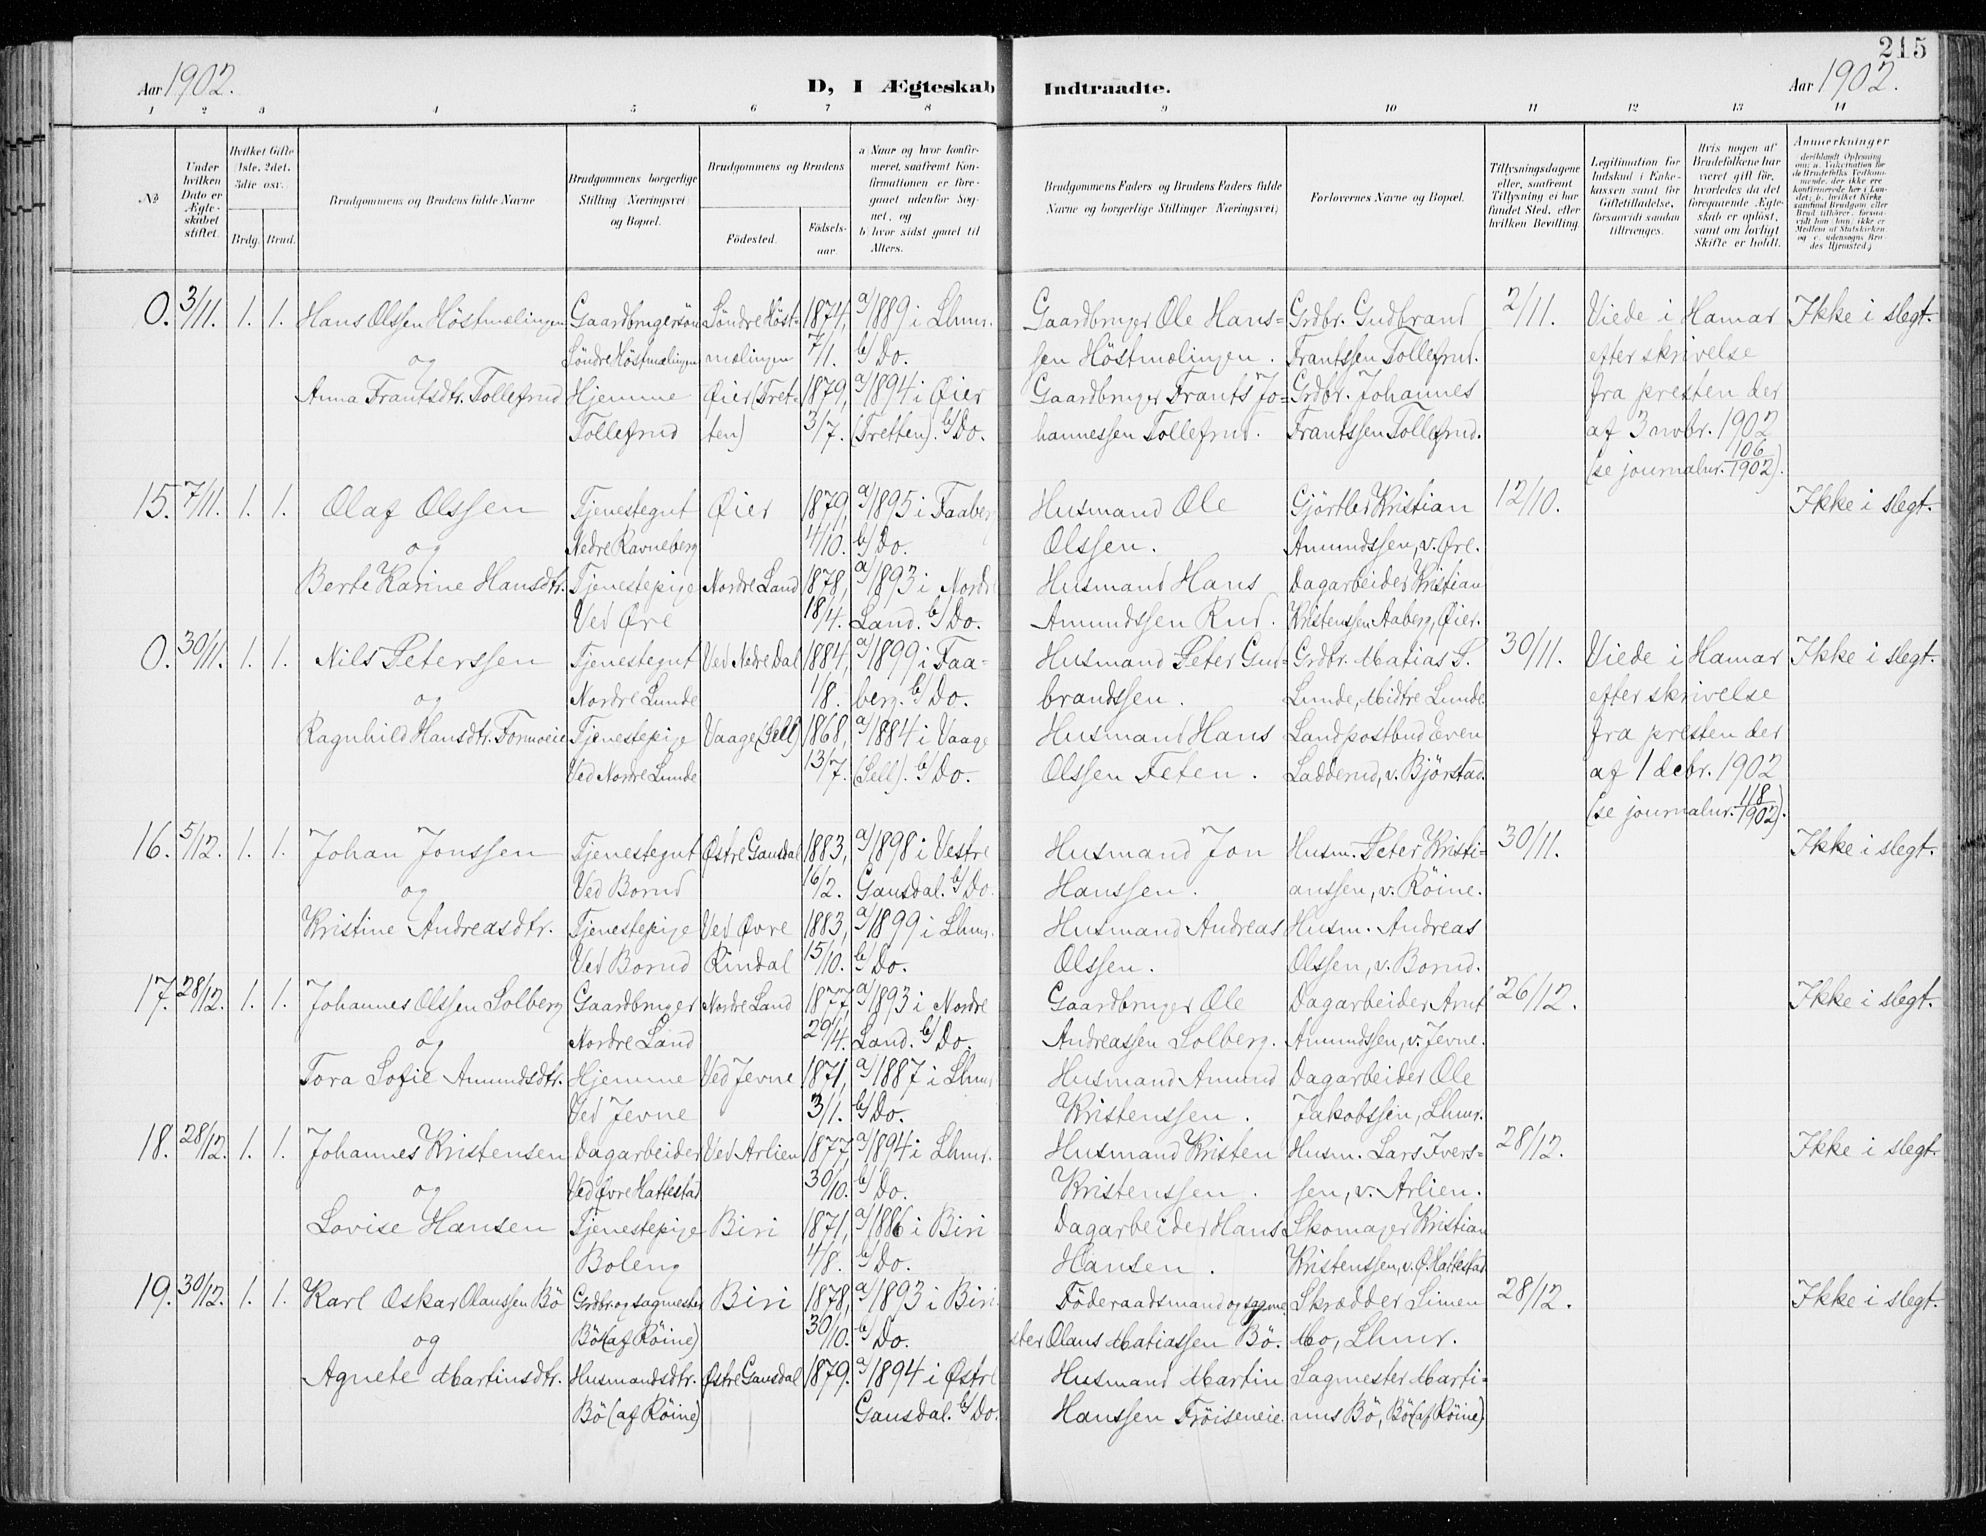 215
Aar 1902.
D, I Ægteskab Indtraadte.
Aar 1902.
1 2 3 4 5 6 7 8 9 10 11 12 13 14
No
Under hvilken Dato er Ægteskabet stiftet.
Hvilket Gifte (1ste, 2det, 3die osv.
Brdg. Brud.
Brudgommens og Brudens fulde Navne
Brudgommens borgerlige Stilling (Næringsvei) og Bopæl.
Brudgommens og Brudens
Fødested.
Fødselsaar.
a Naar og hvor konfirmeret, saafremt Konfirmationen er foregaaet udenfor Sognet, og
b hvor sidst gaaet til Alters.
Brudgommens Faders og Brudens Faders fulde Navne og borgerlige Stillinger (Næringsvei)
Forlovernes Navne og Bopæl.
Tillysningsdagene eller, saafremt Tillysning ei har fundet Sted, efter hvilken Bevilling.
Legitimation for Indskud i Enkekassen samt for Giftetilladelse, forsaavidt saadan tiltrænges.
Hvis nogen af Brudefolkene har været gift før, hvorledes da det foregaaende Ægteskab er opløst, samt om lovligt Skifte er holdt.
Anmerkninger
0. 3/11. 1. 1. Hans Olssen Höstmælingen Gaardbrugersön Söndre Höst- 1874, a/1889 i Lhmr. Gaardbruger Ole Hans- Grdbr. Gudbrand 2/11. Viede i Hamar Ikke i slegt.
og Söndre Höstmælingen mælingen 7/1. b/Do. sen Höstmælingen. Frantssen Tollefrud. efter skrivelse
Anna Frantsdtr. Tollefrud Hjemme Øier (Tret- 1879, a/1894 i Øier Gaardbruger Frants Jo- Grdbr. Johannes fra presten der
Tollefrud ten) 3/7. (Tretten). b/Do. hannessen Tollefrud. Frantssen Tollefrud. af 3 novbr. 1902
(se journalnr. 106/1902).
15. 7/11. 1. 1. Olaf Olssen Tjenestegut Øier 1879, a/1895 i Faaberg Husmand Ole Gjörtler Kristian 12/10. Ikke i slegt.
og Nedre Ravneberg 4/10. b/Do. Olssen. Amundssen, v. Øre.
Berte Karine Hansdtr. Tjenestepige Nordre Land 1878, a/1893 i Nordre Husmand Hans Dagarbeider Kristian
Ved Øre 18/4. Land. b/Do. Amundssen Rud. Kristenssen Aaberg, Øier.
0. 30/11. 1. 1. Nils Peterssen Tjenestegut Ved Nedre Dal 1884, a/1899 i Faa- Husmand Peter Gud- Grdbr. Matias S. 30/11. Viede i Hamar Ikke i slegt.
og Nordre Lunde 1/8. berg. b/Do. brandssen. Lunde, Midtre Lunde. efter skrivelse
Ragnhild Hansdtr. Formoeie Tjenestepige Vaage (Sell) 1868, a/1884 i Vaage Husmand Hans Landpostbud Even fra presten der
Ved Nordre Lunde 13/7. (Sell). b/Do. Olssen Feten. Ladderud, v. Björstad. af 1 debr. 1902
(se journalnr. 118/1902).
16. 5/12. 1. 1. Johan Jonssen Tjenestegut Østre Gausdal 1883, a/1898 i Vestre Husmand Jon Husm. Peter Kristi- 30/11. Ikke i slegt.
og Ved Borud 16/2. Gausdal. b/Do. Hanssen. anssen, v. Röine.
Kristine Andreasdtr. Tjenestepige Ved Øvre 1883, a/1899 i Lhmr. Husmand Andreas Husm. Andreas
Ved Borud Rindal 15/10. b/Do. Olssen. Olssen, v. Borud.
17. 28/12. 1. 1. Johannes Olssen Solberg Gaardbruger Nordre Land 1877, a/1893 i Nordre Gaardbruger Ole Dagarbeider Arnt 26/12. Ikke i slegt.
og Nordre Land 29/4. Land. b/Do. Andreassen Solberg. Amundssen, v. Jevne.
Tora Sofie Amundsdtr. Hjemme Ved Jevne 1871, a/1887 i Lhmr. Husmand Amund Dagarbeider Ole
Ved Jevne 3/1. b/Do. Kristenssen. Jakobssen, Lhmr.
18. 28/12. 1. 1. Johannes Kristensen Dagarbeider Ved Arlien 1877, a/1894 i Lhmr. Husmand Kristen Husm. Lars Ivers- 28/12. Ikke i slegt.
og Ved Øvre Hattestad 30/10. b/Do. Kristenssen. sen, v. Arlien.
Lovise Hansen Tjenestepige Biri 1871, a/1886 i Biri Dagarbeider Hans Skomager Kristian
Boleng 4/8. b/Do. Hansen. Kristenssen, v. Ø. Hattestad
19. 30/12. 1. 1. Karl Oskar Olaussen Bö Grdbr. og sagmester Biri 1878, a/1893 i Biri. Föderaadsmand og sagme- Skrædder Simen 28/12. Ikke i slegt.
og Bö (af Röine) 30/10. b/Do. ster Olaus Matiassen Bö. Mo, Lhmr.
Agnete Martinsdtr. Husmandsdtr. Østre Gausdal 1879. a/1894 i Østre Husmand Martin Sagmester Marti-
Bö (af Röine) Gausdal. b/Do. Hanssen Fröiseneie. nus Bö, Bö (af Röine)